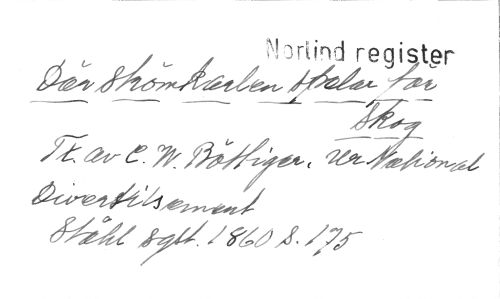 Norlind register
Där strömkarlen spelar för
skog
Tr. av C. W. Böttiger. Ur National
Divertissement
Ståhl sgst. 1860 s. 175